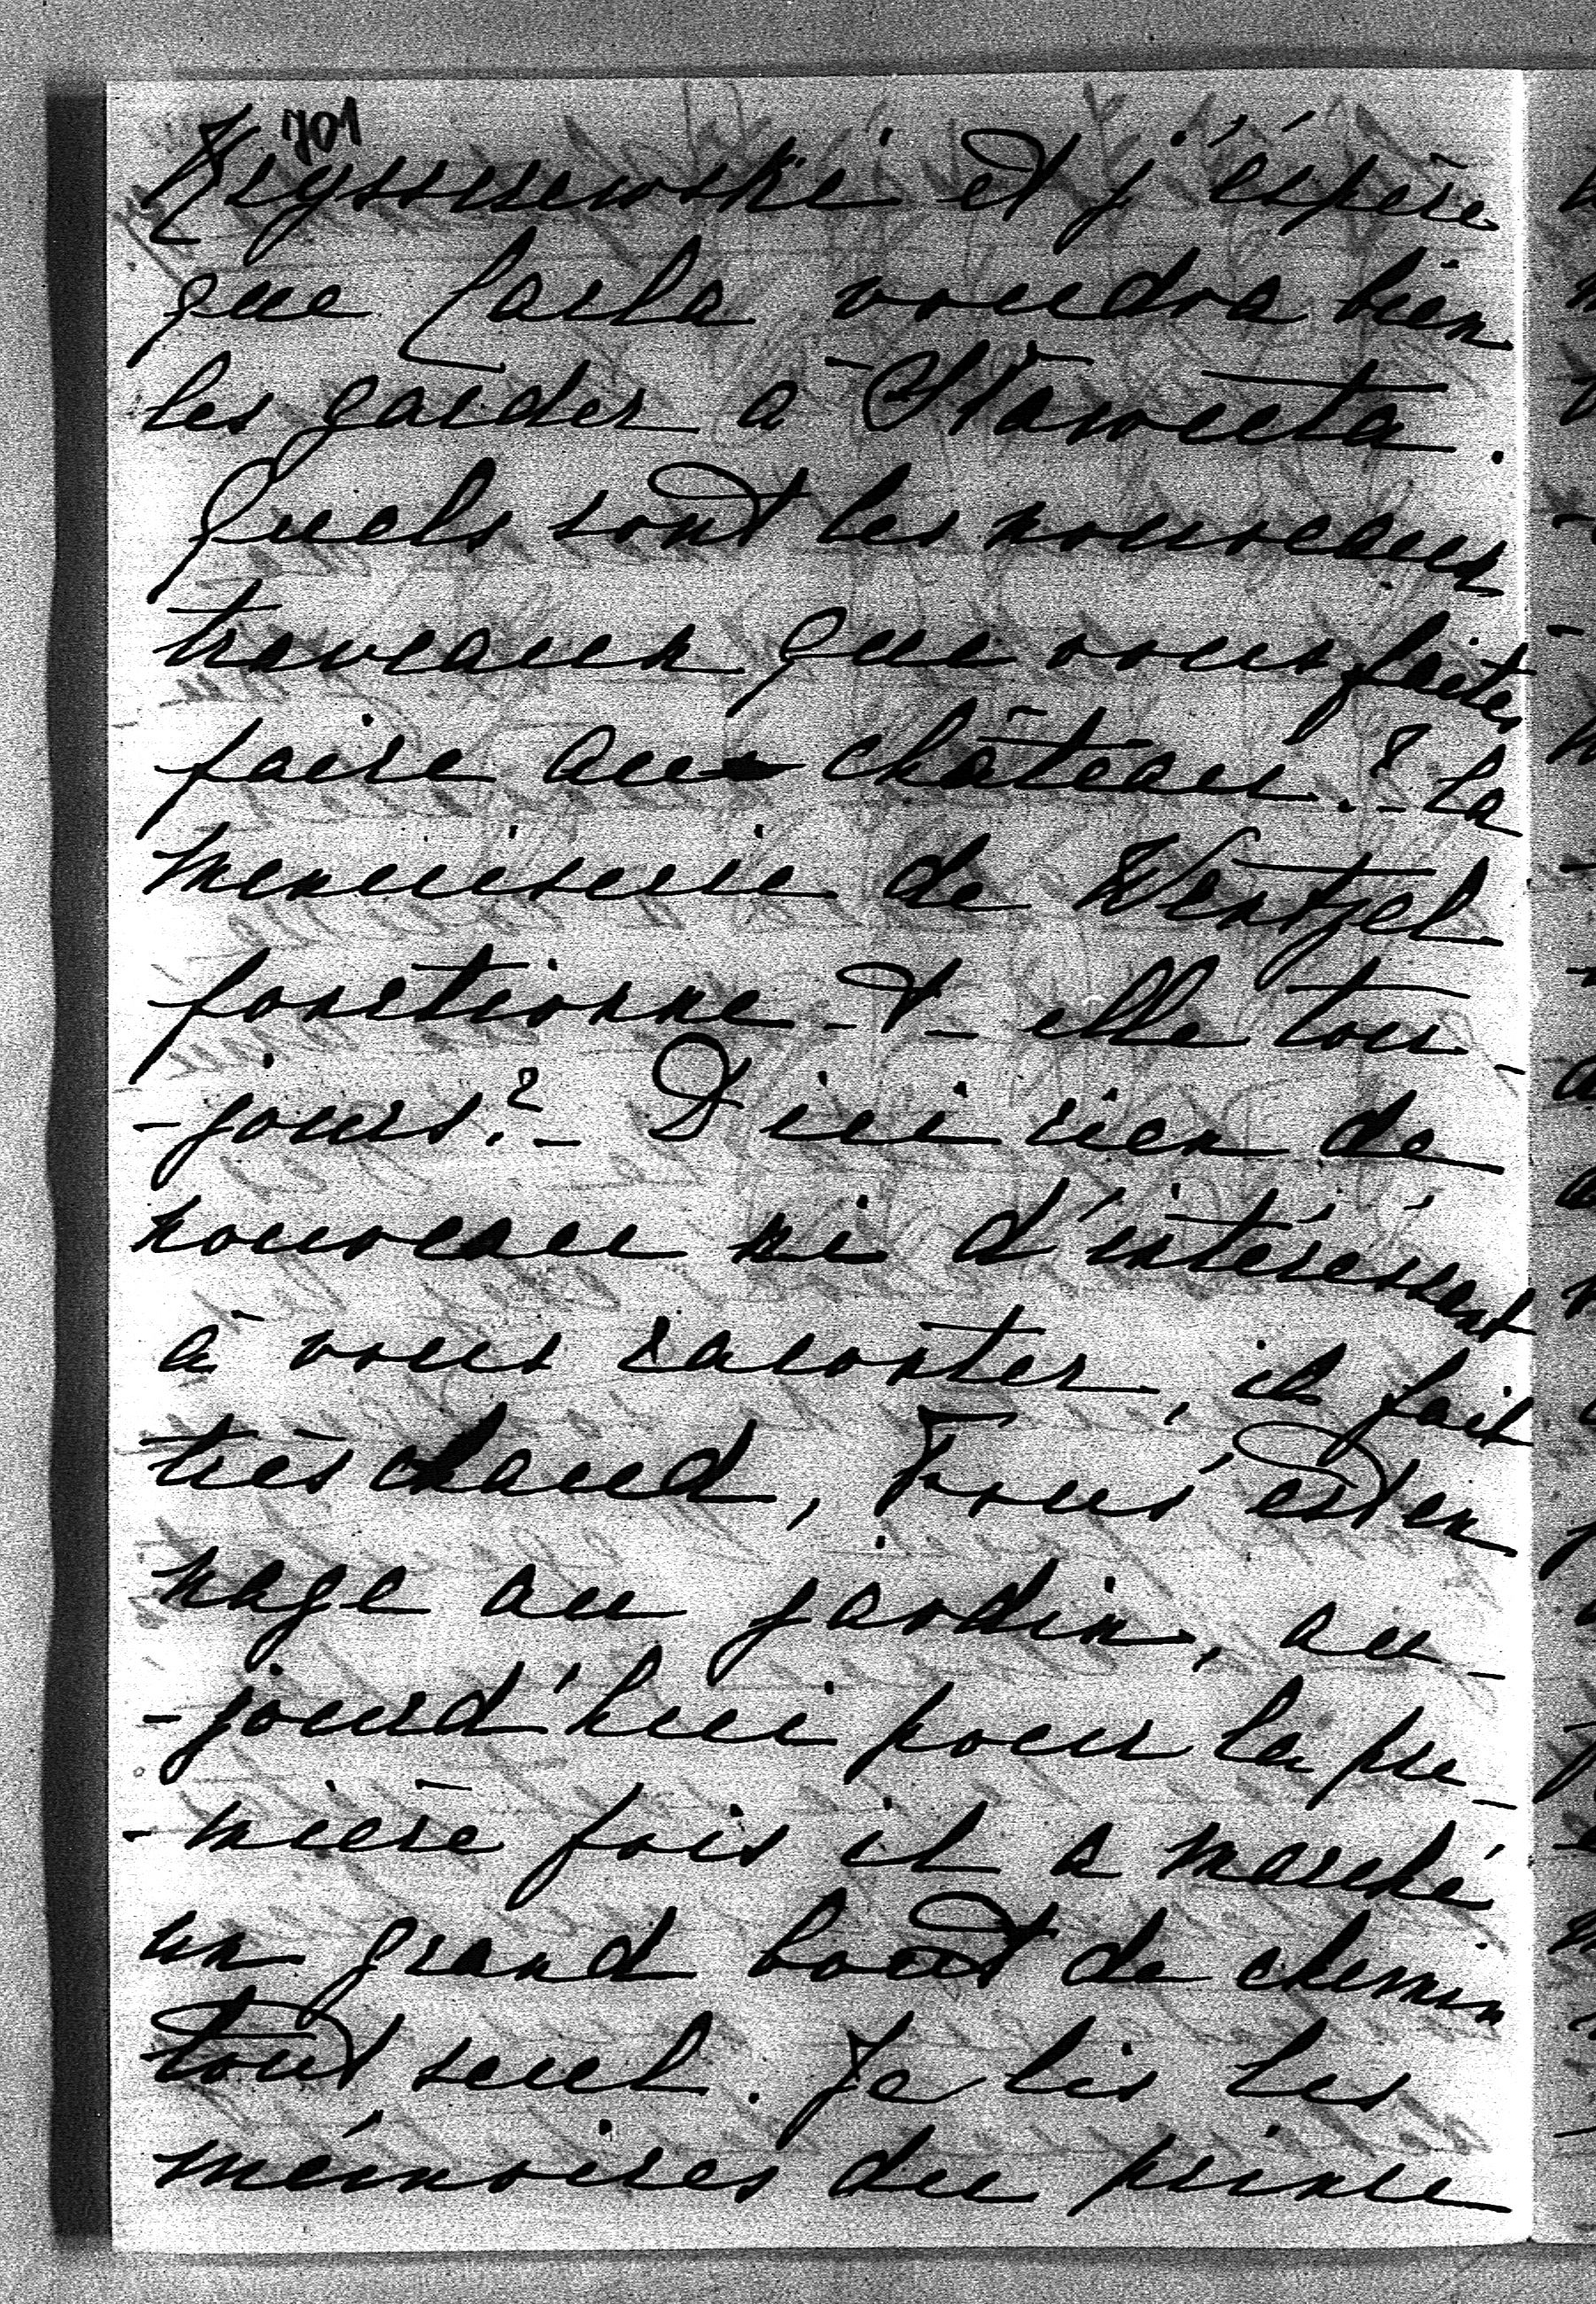 701
et j'éspère
que voudra bien
les garder à Stawuta.
Quels sont les nouveaux
traveaux que vous faites
faire au châteaux? - La
menuiserie de Wentzel
fonctionne-t-elle tou-
-jours? - D'ici rien de
nouveau ni d'intéressent
à vous raconter, il fait
très chaud, est en
nage au jardin, au-
-jourd'hui pour la pre-
-mière fois il a marché
un grand bout de chemin
tout seul. Je lis les
mémoires du prince